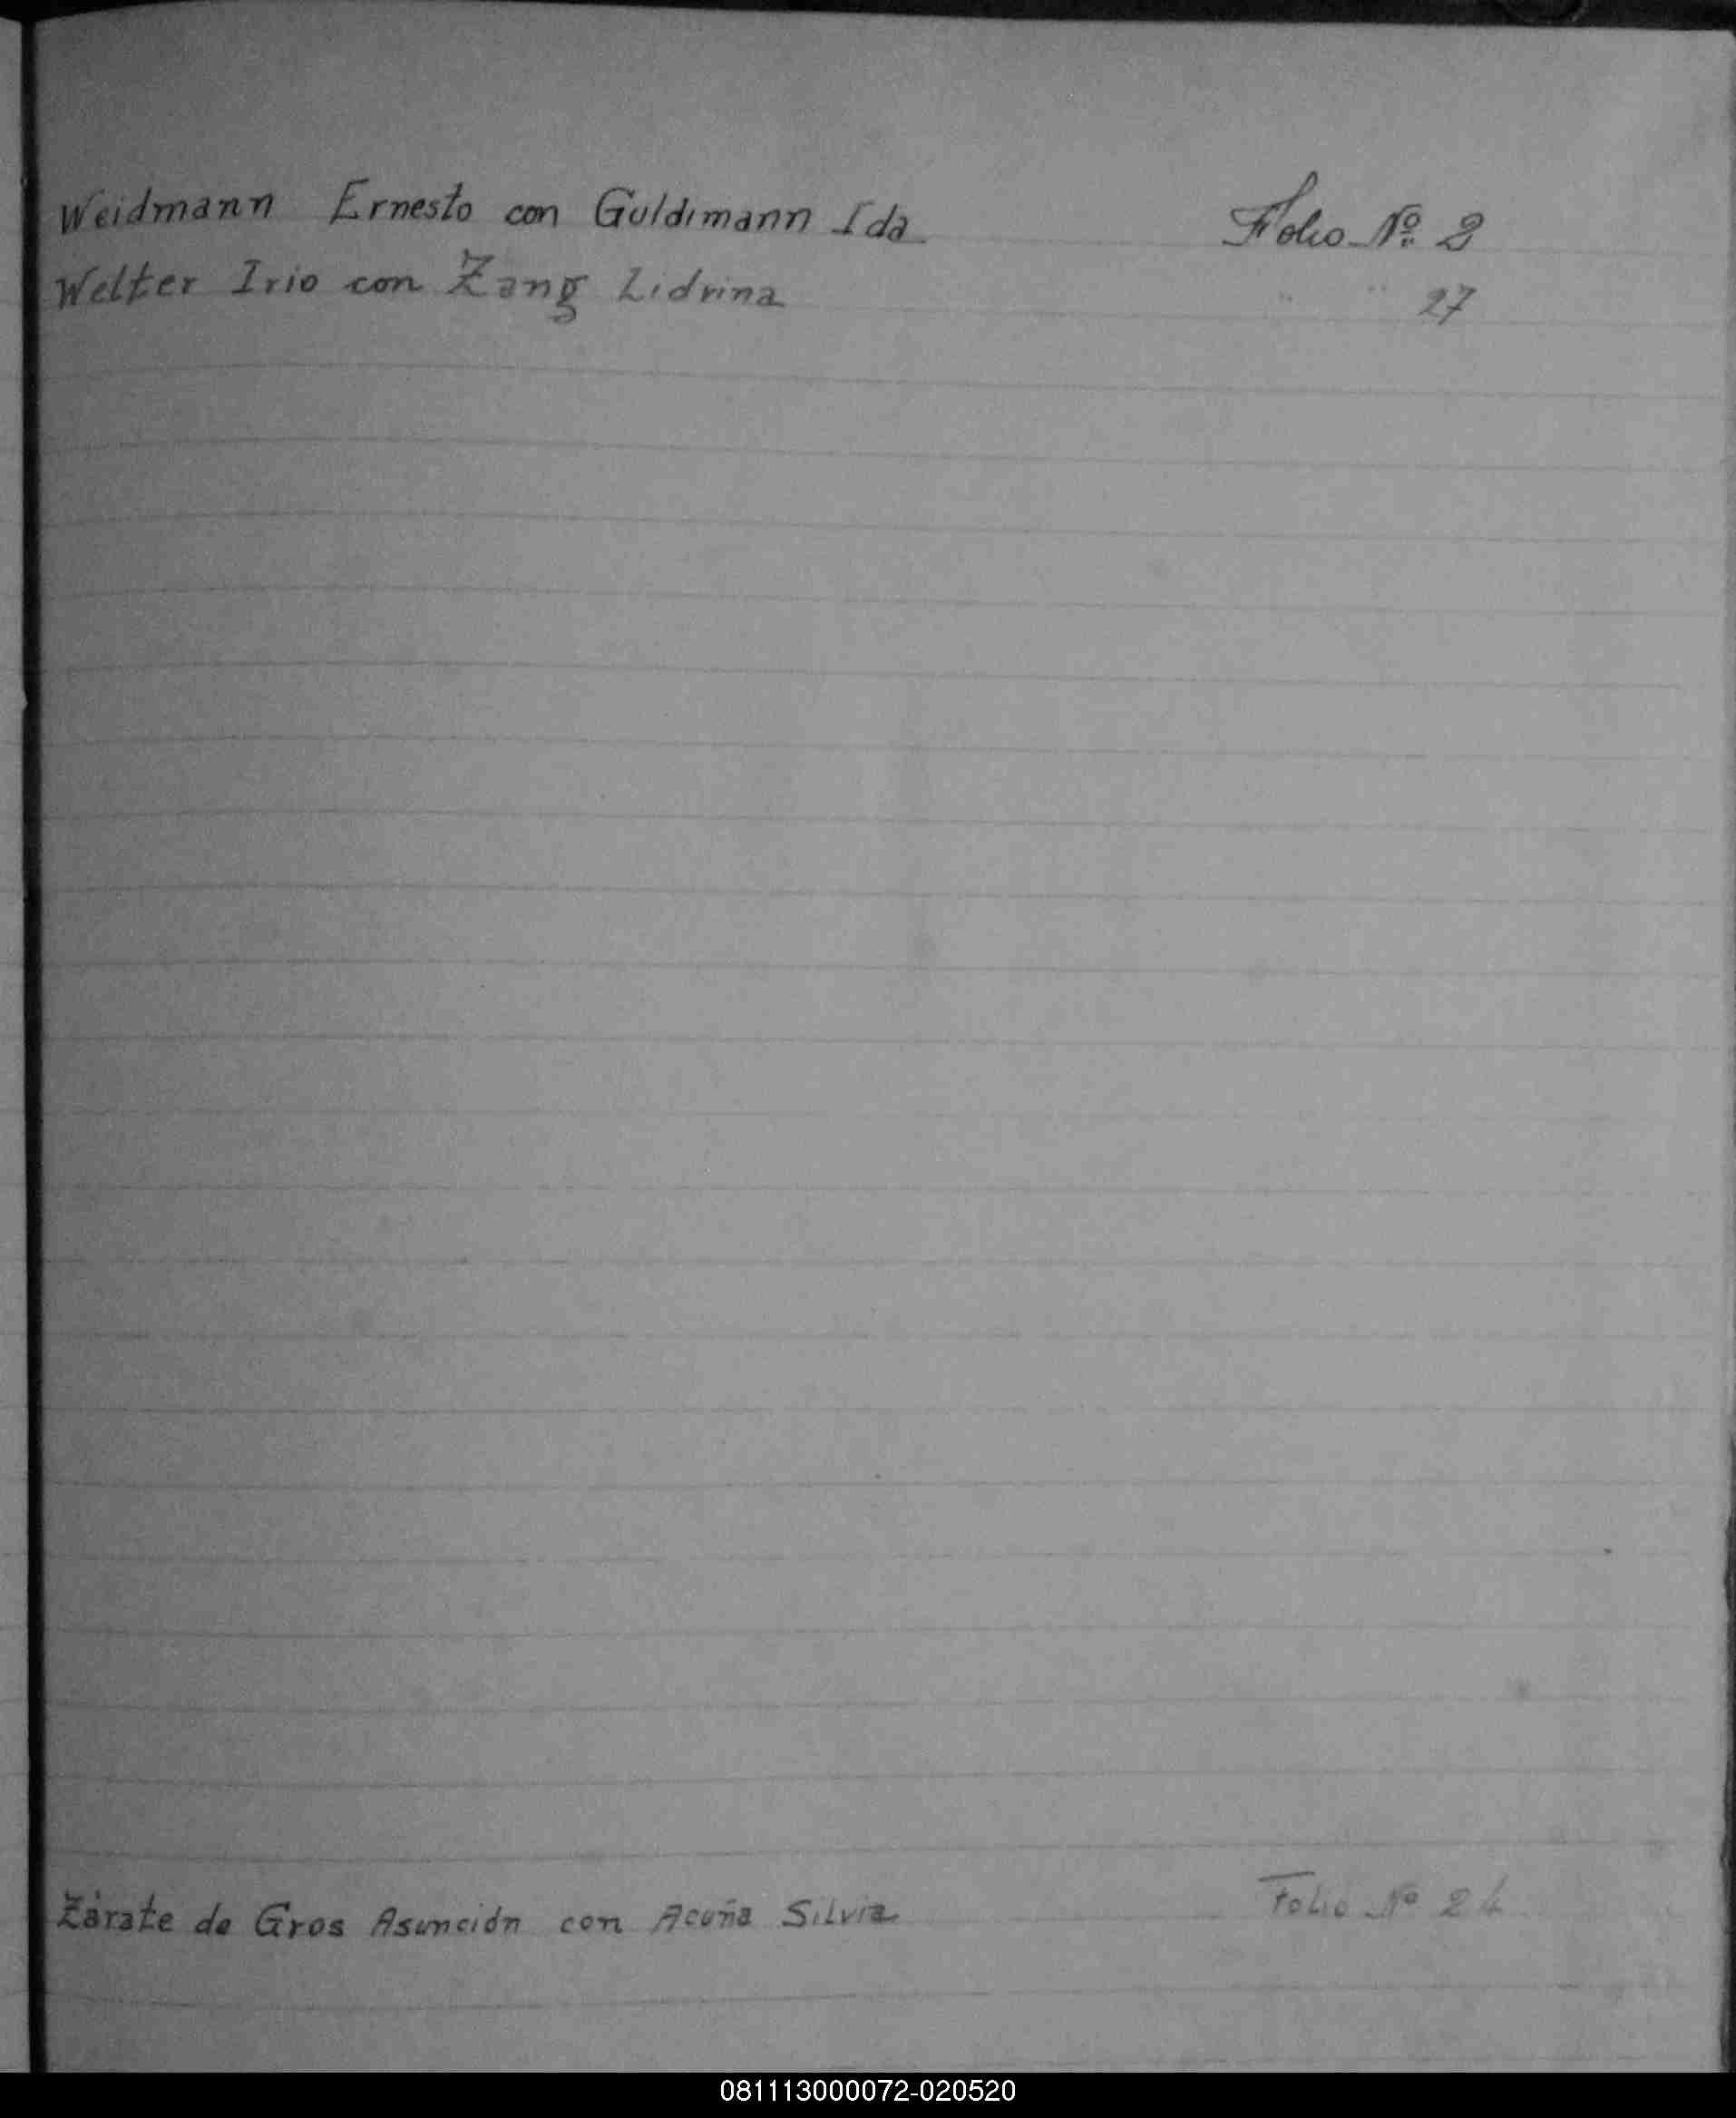 Weidmann Ernesto con Guldimann Ida Folio Nº 2
Welter Irio con Zang Lidvina " " 27
Zárate de Gros Asunción con Acuña Silvia Folio Nº 24
081113000072-020520